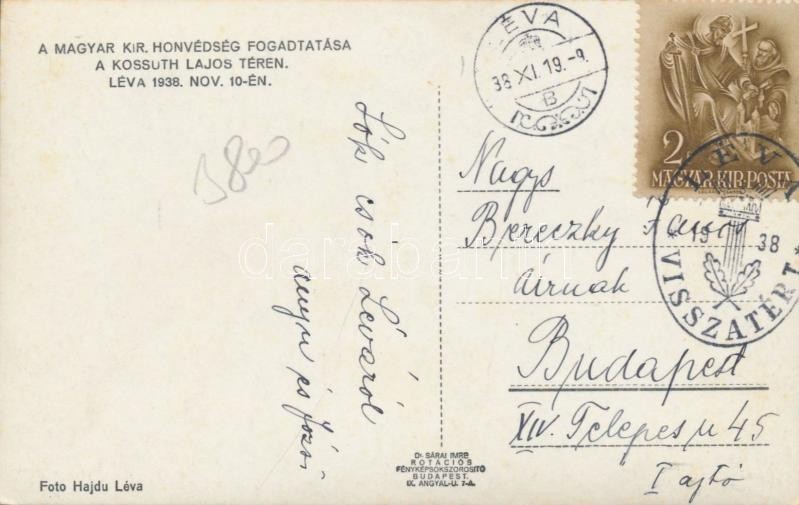 A MAGYAR KIR. HONVÉDSÉG FOGADTATÁSA
A KOSSUTH LAJOS TÉREN.
LÉVA 1938. NOV. 10-ÉN.
LÉVA
38 XI. 19.-9.
B
2
MAGYAR·KIR·POSTA
LÉVA
19 38
* VISSZATÉRT *
Sok csók Léváról
anyu és Józsi
Nagys
Bereczky János
úrnak
Budapest
XIV. Telepes u 45
I ajtó
Foto Hajdu Léva
Dr. SÁRAI IMRE
ROTACIÓS
FÉNYKÉPSOKSZOROSITÓ
BUDAPEST.
IX. ANGYAL-U. 7-A.
darabanth